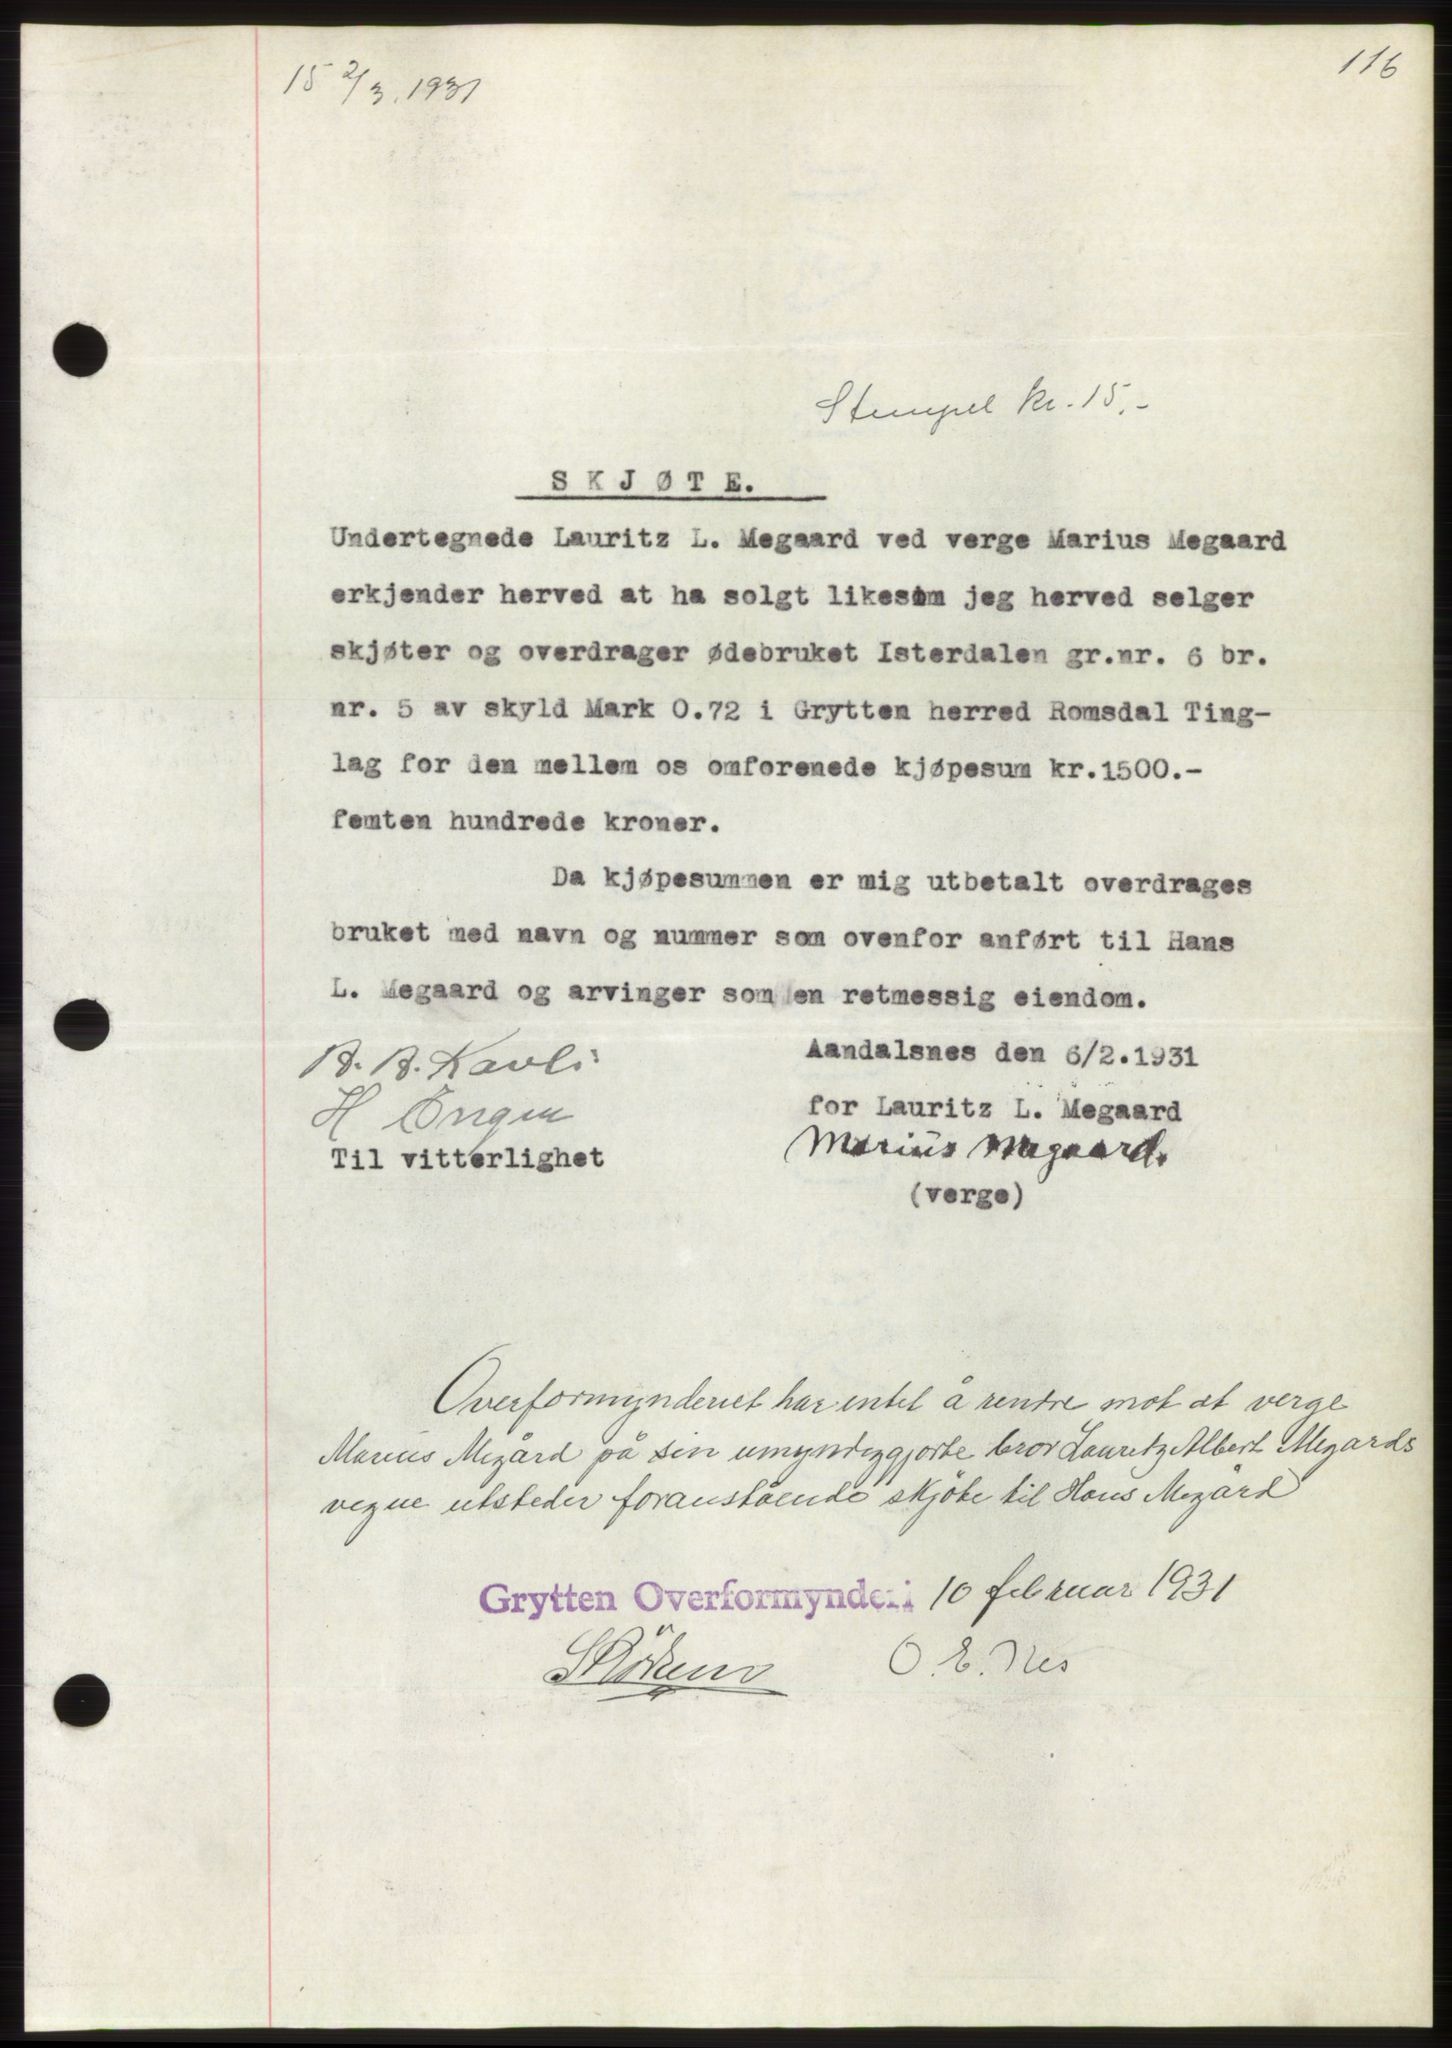 116
15 2/3. 1931
Stempel kr. 15.-
SKJØTE.
Undertegnede Lauritz L. Megaard ved verge Marius Megaard
erkjender herved at ha solgt likesom jeg herved selger
skjøter og overdrager ødebruket Isterdalen gr.nr. 6 br.
nr. 5 av skyld Mark 0.72 i Grytten herred Romsdal Ting-
lag for den mellem os omforenede kjøpesum kr.1500.-
femten hundrede kroner.
Da kjøpesummen er mig utbetalt overdrages
bruket med navn og nummer som ovenfor anført til Hans
L. Megaard og arvinger som en retmessig eiendom.
Aandalsnes den 6/2.1931
B. B. Kavli
for Lauritz L. Megaard
H
Marius Megaard.
Til vitterlighet
(verge)
Overformynderiet har intet å
 mot at verge
Marius Megård på sin umyndiggjorte bror Lauritz Albert Megårds
vegne utsteder foranstående skjöte til Hans Megård
Grytten Overformynderi 10 februar 1931
O. E. Nes